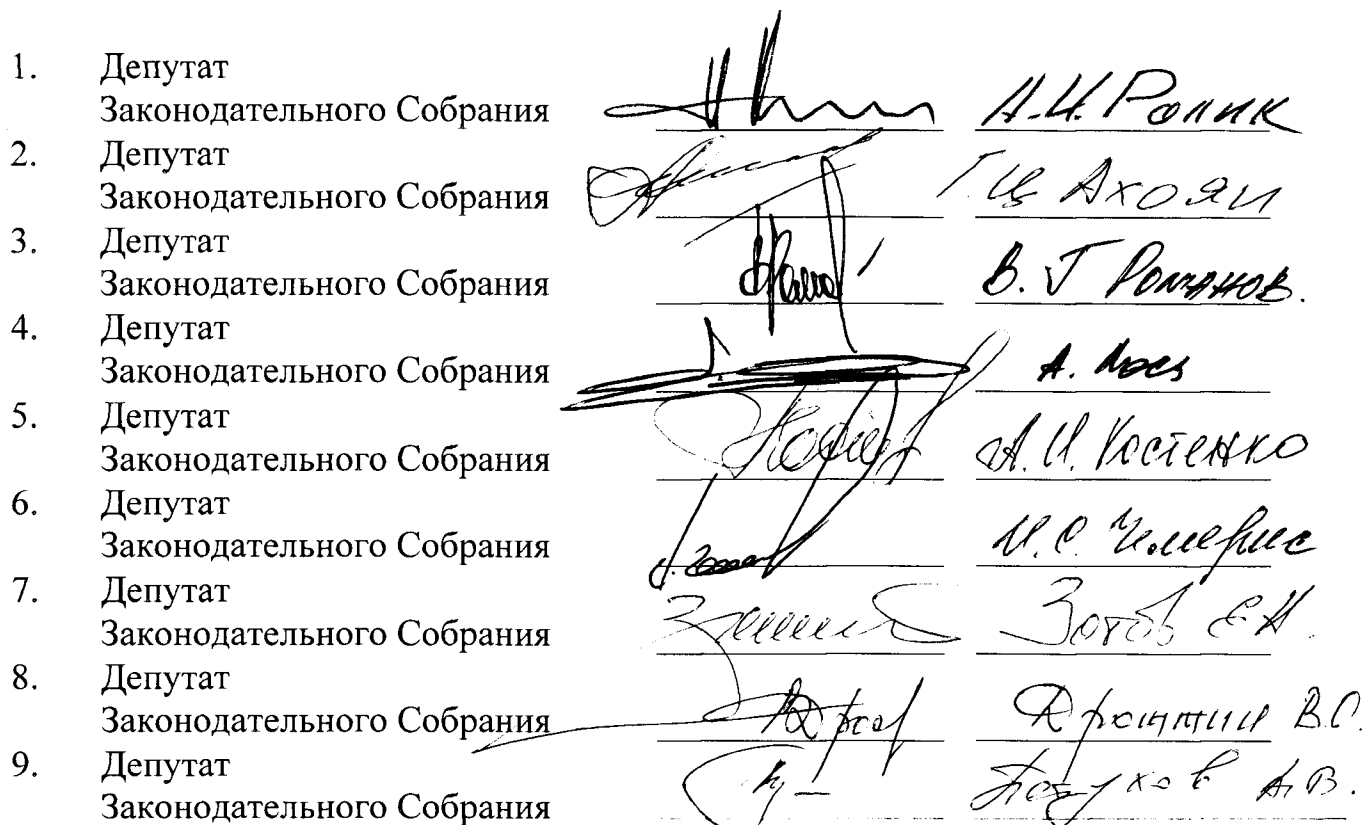 1. Депутат
Законодательного Собрания А.И. Ролик
2. Депутат
Законодательного Собрания Ахоян
3. Депутат
Законодательного Собрания В. Г Романов.
4. Депутат
Законодательного Собрания А.
5. Депутат
Законодательного Собрания А.И. Костенко
6. Депутат
Законодательного Собрания И.С. Чемерис
7. Депутат
Законодательного Собрания Зотов Е.Н.
8. Депутат
Законодательного Собрания В.С.
9. Депутат
Законодательного Собрания А.В.